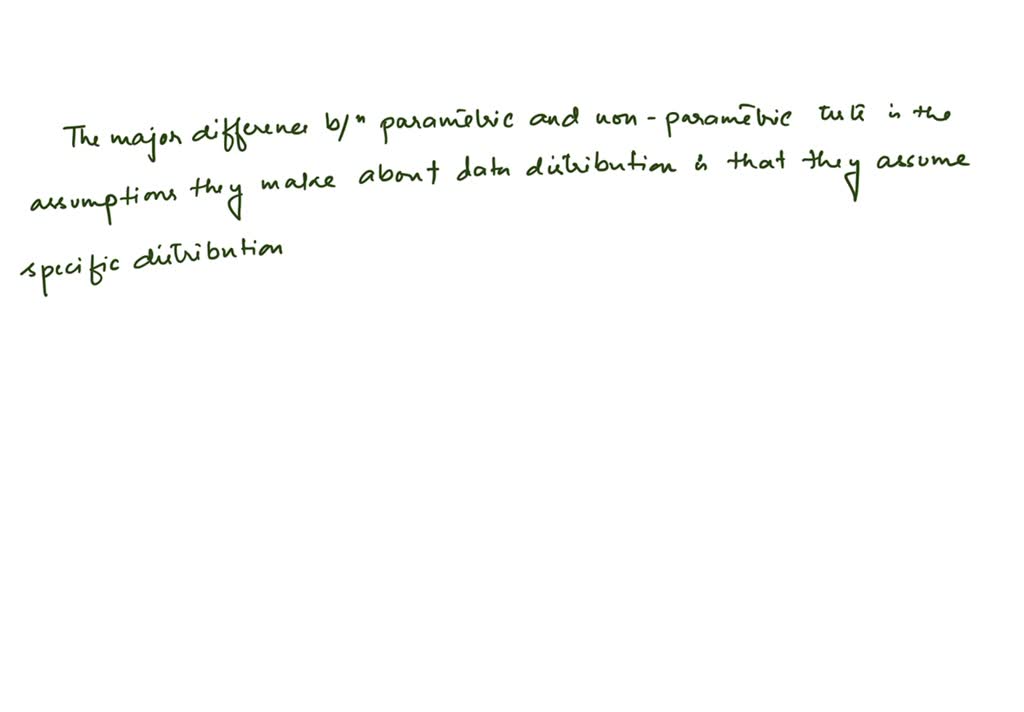 The major difference b/n parametric and non-parametric tests is the
assumptions they make about data distribution is that they assume
specific distribution